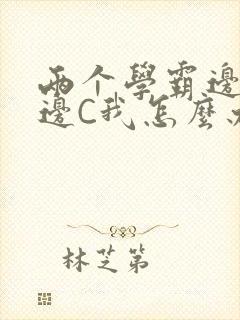 两个學霸邊
邊C我怎麼
林芝第